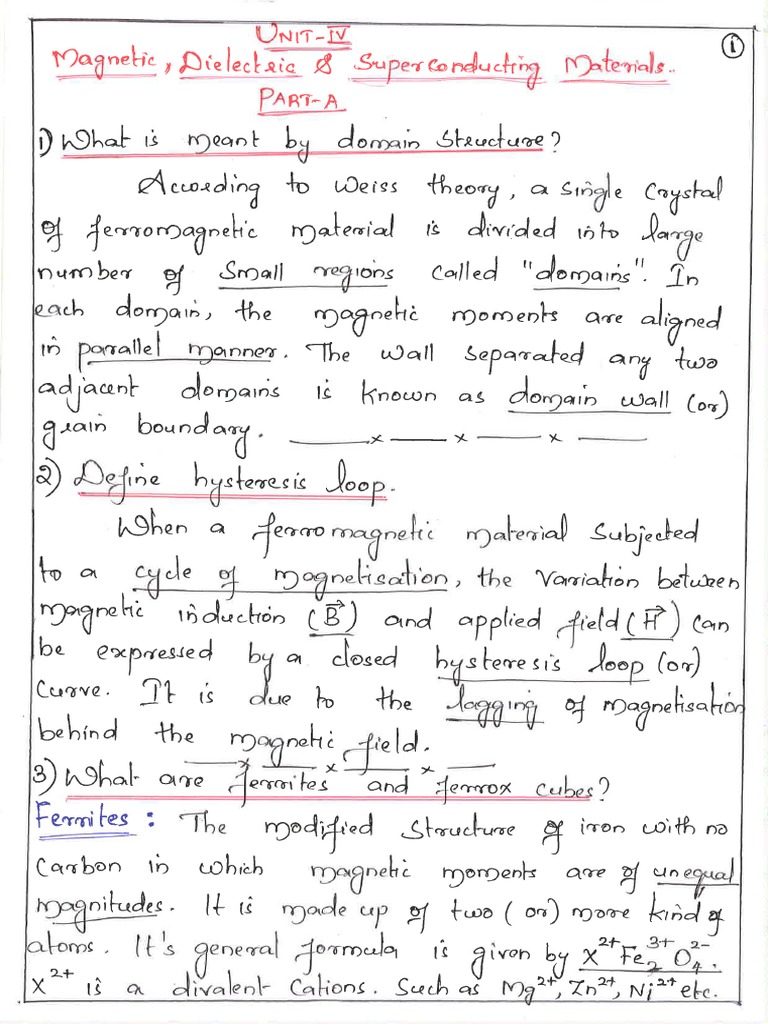 UNIT-IV
①
Magnetic, Dielectric & Superconducting Materials..
PART-A
1) What is meant by domain structure?
According to Weiss theory, a single crystal
of ferromagnetic material is divided into large
number of small regions called "domains". In
each domain, the magnetic moments are aligned
in parallel manner. The wall separated any two
adjacent domains is known as domain wall (or)
grain boundary. ——x——x——x——
2) Define hysteresis loop.
When a ferromagnetic material subjected
to a cycle of magnetisation, the variation between
magnetic induction (B⃗) and applied field (H⃗) can
be expressed by a closed hysteresis loop (or)
curve. It is due to the lagging of magnetisation
behind the magnetic field.
——x——x——x——
3) What are ferrites and ferrox cubes?
Ferrites : The modified structure of iron with no
carbon in which magnetic moments are of unequal
magnitudes. It is made up of two (or) more kind of
atoms. It's general formula is given by X²⁺Fe₂³⁺O₄²⁻.
X²⁺ is a divalent cations. Such as Mg²⁺, Zn²⁺, Ni²⁺ etc.